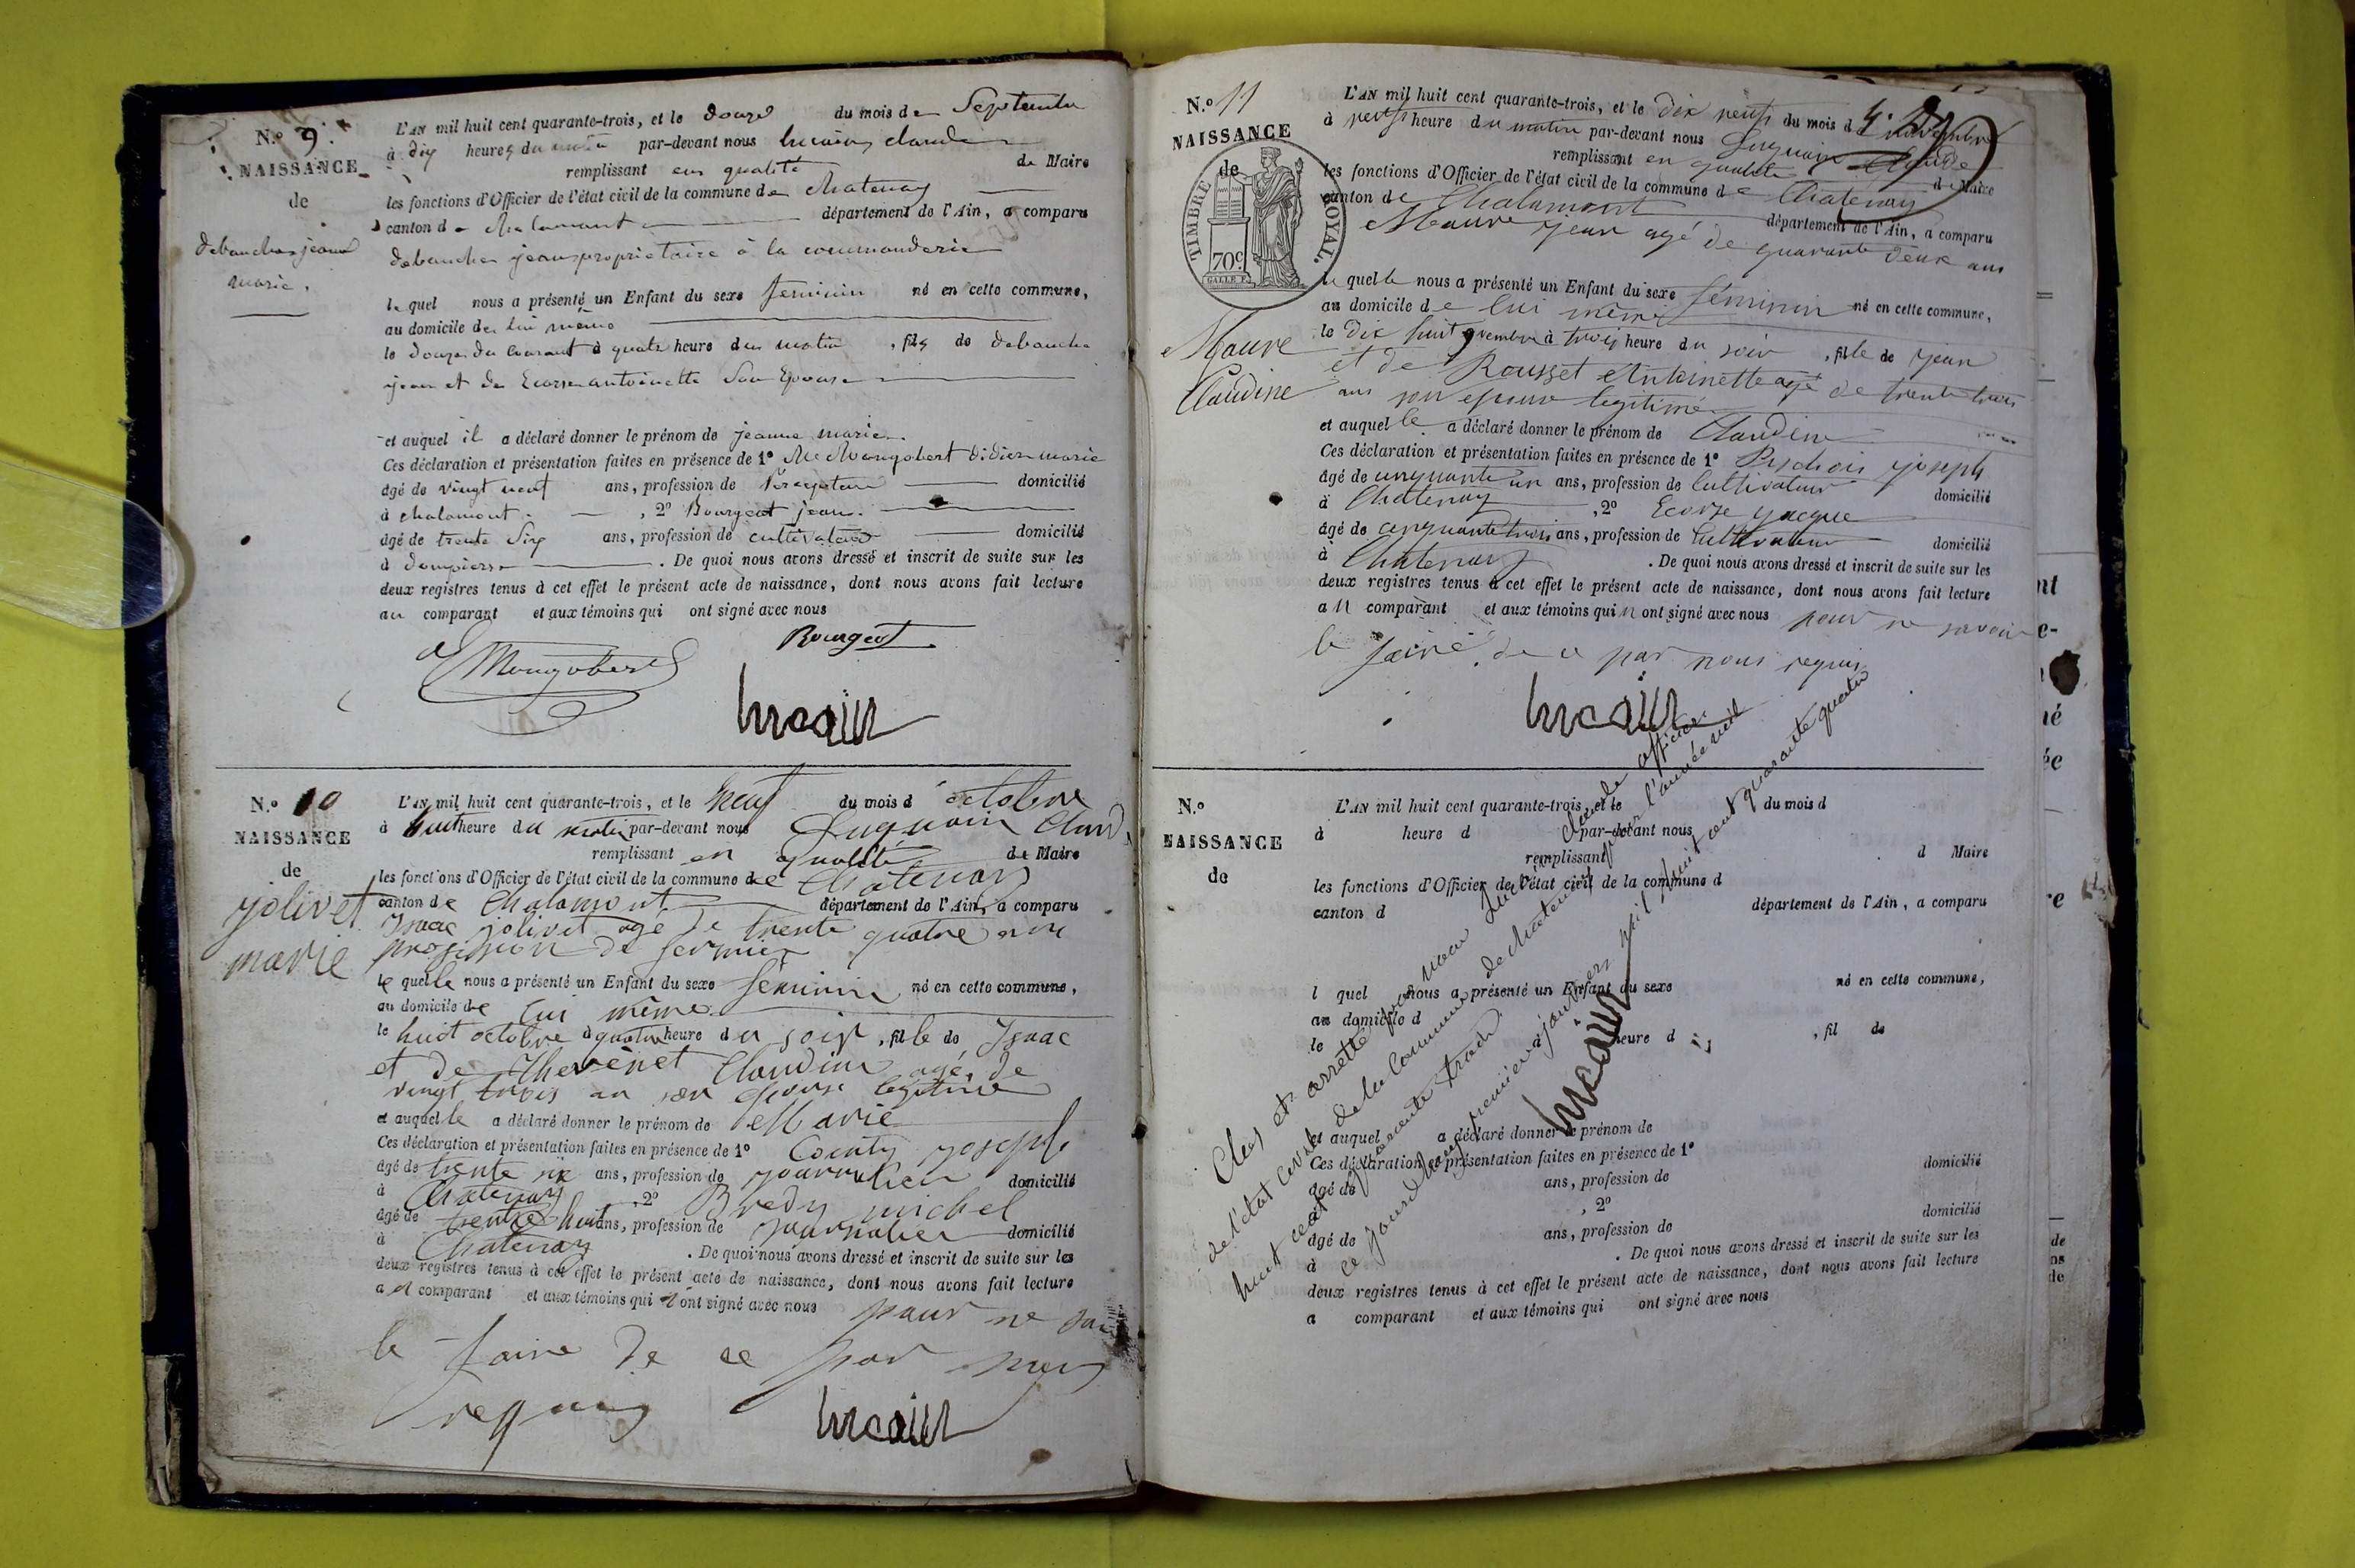 N.º 9.
NAISSANCE
de
debauches jeanne
marie.
L'AN mil huit cent quarante-trois, et le douze du mois de Septembre
à dix heures du matin par-devant nous lucain claude
remplissant en qualité de Maire
les fonctions d'Officier de l'état civil de la commune de chatenay
canton de chalamont département de l'Ain, a comparu
debauches jean propriétaire à la commanderie
le quel nous a présenté un Enfant du sexe feminin né en cette commune,
au domicile de lui même
le douze du courant à quatre heure du matin , fils de debauche
jean et de Ecorse antoinette Son Epouse
et auquel il a déclaré donner le prénom de jeanne marie
Ces déclaration et présentation faites en présence de 1º Mongobert didier marie
âgé de vingt neuf ans, profession de Percepteur domicilié
à chalamont. , 2º Bourgeot jean.
âgé de trente Six ans, profession de cultivateur domicilié
à dompierre . De quoi nous avons dressé et inscrit de suite sur les
deux registres tenus à cet effet le présent acte de naissance, dont nous avons fait lecture
au comparant et aux témoins qui ont signé avec nous
Bourgeot
Mongobert
lucain
N.º 10
NAISSANCE
de
jolivet
marie
L'AN mil huit cent quarante-trois, et le neuf du mois d octobre
à huit heure du matin par-devant nous Luquain Claude
remplissant en qualité de Maire
les fonctions d'Officier de l'état civil de la commune de Chatenay
canton de Chalamont département de l'Ain, a comparu
Isaac jolivet agé de trente quatre ans
profession de fermier
le quelle nous a présenté un Enfant du sexe féminin né en cette commune,
au domicile de lui même
le huit octobre à quatre heure du soir , fille de Isaac
et de Thevenet Claudine agé de
vingt trois an son epouse legitime
et auquelle a déclaré donner le prénom de Marie
Ces déclaration et présentation faites en présence de 1º Couty joseph
âgé de trente six ans, profession de journalier domicilié
à Chatenay , 2º Bredy michel
âgé de trente huit ans, profession de journalier domicilié
à Chatenay . De quoi nous avons dressé et inscrit de suite sur les
deux registres tenus à cet effet le présent acte de naissance, dont nous avons fait lecture
au comparant et aux témoins qui n ont signé avec nous pour ne
le faire de ce par nous
requis
lucain
N.º 11
NAISSANCE
de
TIMBRE ROYAL.
70 C
Maure
Claudine
L'AN mil huit cent quarante-trois, et le dix neuf du mois d novembre
à neuf heure du matin par-devant nous Luquain Claude
remplissant en qualité d Maire
les fonctions d'Officier de l'état civil de la commune de Chatenay
canton de Chalamont département de l'Ain, a comparu
Maure jean agé de quarante deux ans
le quelle nous a présenté un Enfant du sexe féminin né en cette commune,
au domicile de lui même
le dix huit 9vembre à trois heure du soir , fille de jean
et de Rousset Antoinette agé de trente trois
ans son epouse legitime
et auquelle a déclaré donner le prénom de Claudine
Ces déclaration et présentation faites en présence de 1º joseph
âgé de cinquante un ans, profession de Cultivateur domicilié
à Chatenay , 2º Ecorse jacque
âgé de cinquante trois ans, profession de Cultivateur domicilié
à Chatenay . De quoi nous avons dressé et inscrit de suite sur les
deux registres tenus à cet effet le présent acte de naissance, dont nous avons fait lecture
au comparant et aux témoins qui n ont signé avec nous pour ne savoir
le faire de ce par nous requis
lucain
N.º
NAISSANCE
de
L'AN mil huit cent quarante-trois, et le du mois d
à heure d par-devant nous
remplissant d Maire
les fonctions d'Officier de l'état civil de la commune d
canton d département de l'Ain, a comparu
l quel nous a présenté un Enfant du sexe né en cette commune,
au domicile d
le à heure d , fil de
et auquel a déclaré donner le prénom de
Ces déclaration et présentation faites en présence de 1º
âgé de ans, profession de domicilié
à , 2º
âgé de ans, profession de domicilié
à . De quoi nous avons dressé et inscrit de suite sur les
deux registres tenus à cet effet le présent acte de naissance, dont nous avons fait lecture
a comparant et aux témoins qui ont signé avec nous
Clos et arretté par nous lucain claude officier
de l'état civil de la commune de chatenay pour l'année mil
huit cent quarante trois
ce jourd'hui premier janvier mil huit cent quarante quatre
lucain